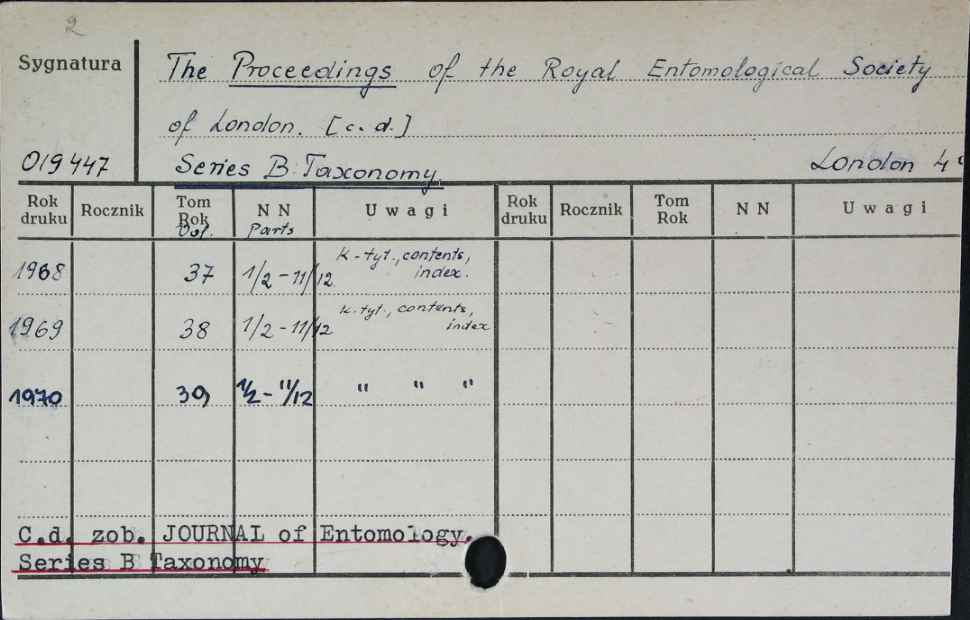 2
Sygnatura
The Proceedings of the Royal Entomological Society
of London. [c.d.]
019447
Series B: Taxonomy
London 4°
Rok druku Rocznik Tom Rok Vol. NN Parts Uwagi Rok druku Rocznik Tom Rok NN Uwagi
1968 37 1/2-11/12 k-tyt., contents, index.
1969 38 1/2-11/12 k-tyt., contents, index
1970 39 1/2-11/12 " " "
C.d. zob. JOURNAL of Entomology.
Series B Taxonomy